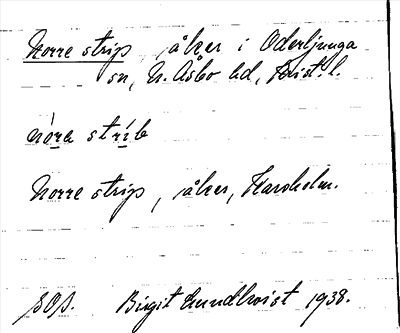 Norre strip, åker i Oderljunga
sn, N. Åsbo hd, Krist. l.
nóra stríb
Norre strip, åker, Karsholm.
SOS. Birgit Lundkvist 1938.